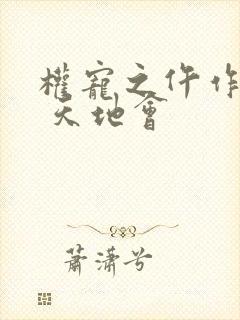 權寵之仵作
天地會
蕭瀟兮